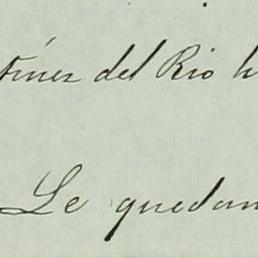 tínez del Rio h
Le quedam